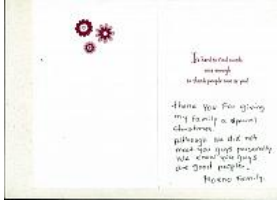 It's hard to find words
nice enough
to thank people nice as you!
thank You For giving
my family a special
christmas.
Although we did not
meet you guys personally
We know you guys
are good people.
Moreno Family.